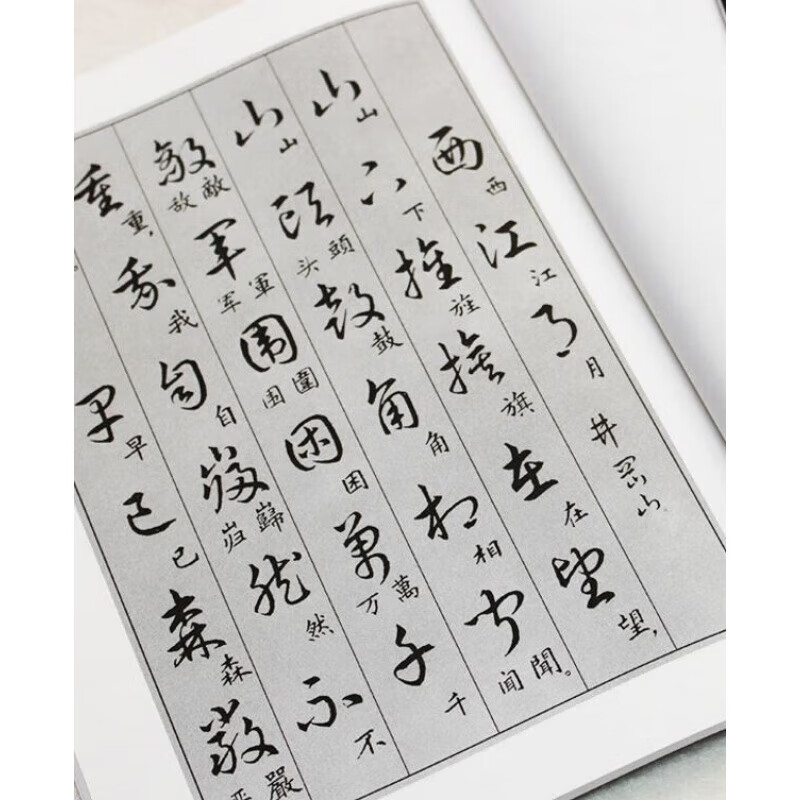 西西江江月月井岡山
山山下下旌旌旗旗在在望望,
山山頭頭头鼓鼓角角相相聞聞闻。
敵敵敌軍軍军圍圍围困困萬萬万千千
重重,我我自自巋巋岿然然不不
早早已已森森嚴嚴严